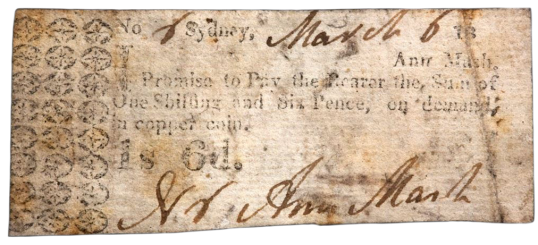 No 6 Sydney, March 6 18
I Ann Mash,
Promise to Pay the Bearer the, Sum of
One Shilling and Six Pence, on demand,
in copper coin.
1s 6d.
Ann Mash